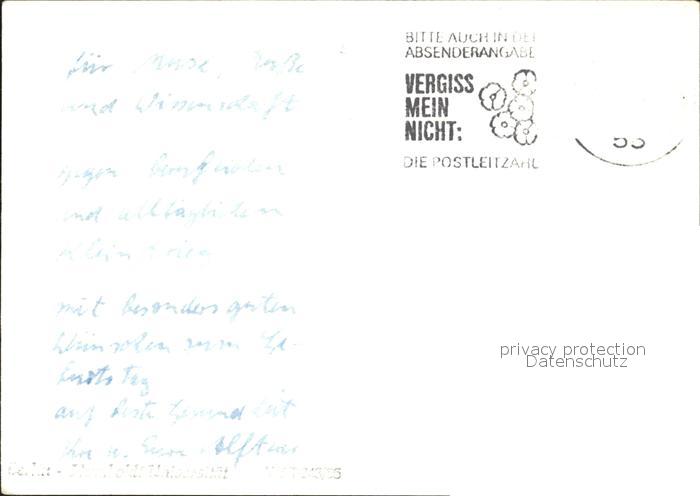 für Muse,
und Wissenschaft
gegen
und alltäglichen
Kleinkrieg
mit besonders guten
Wünschen zum Ge-
burtstag
auf beste Gesundheit
Ihr u. Euer
Berlin - Humboldt-Universität
BITTE AUCH IN DER
ABSENDERANGABE
VERGISS
MEIN
NICHT:
DIE POSTLEITZAHL
53
privacy protection
Datenschutz